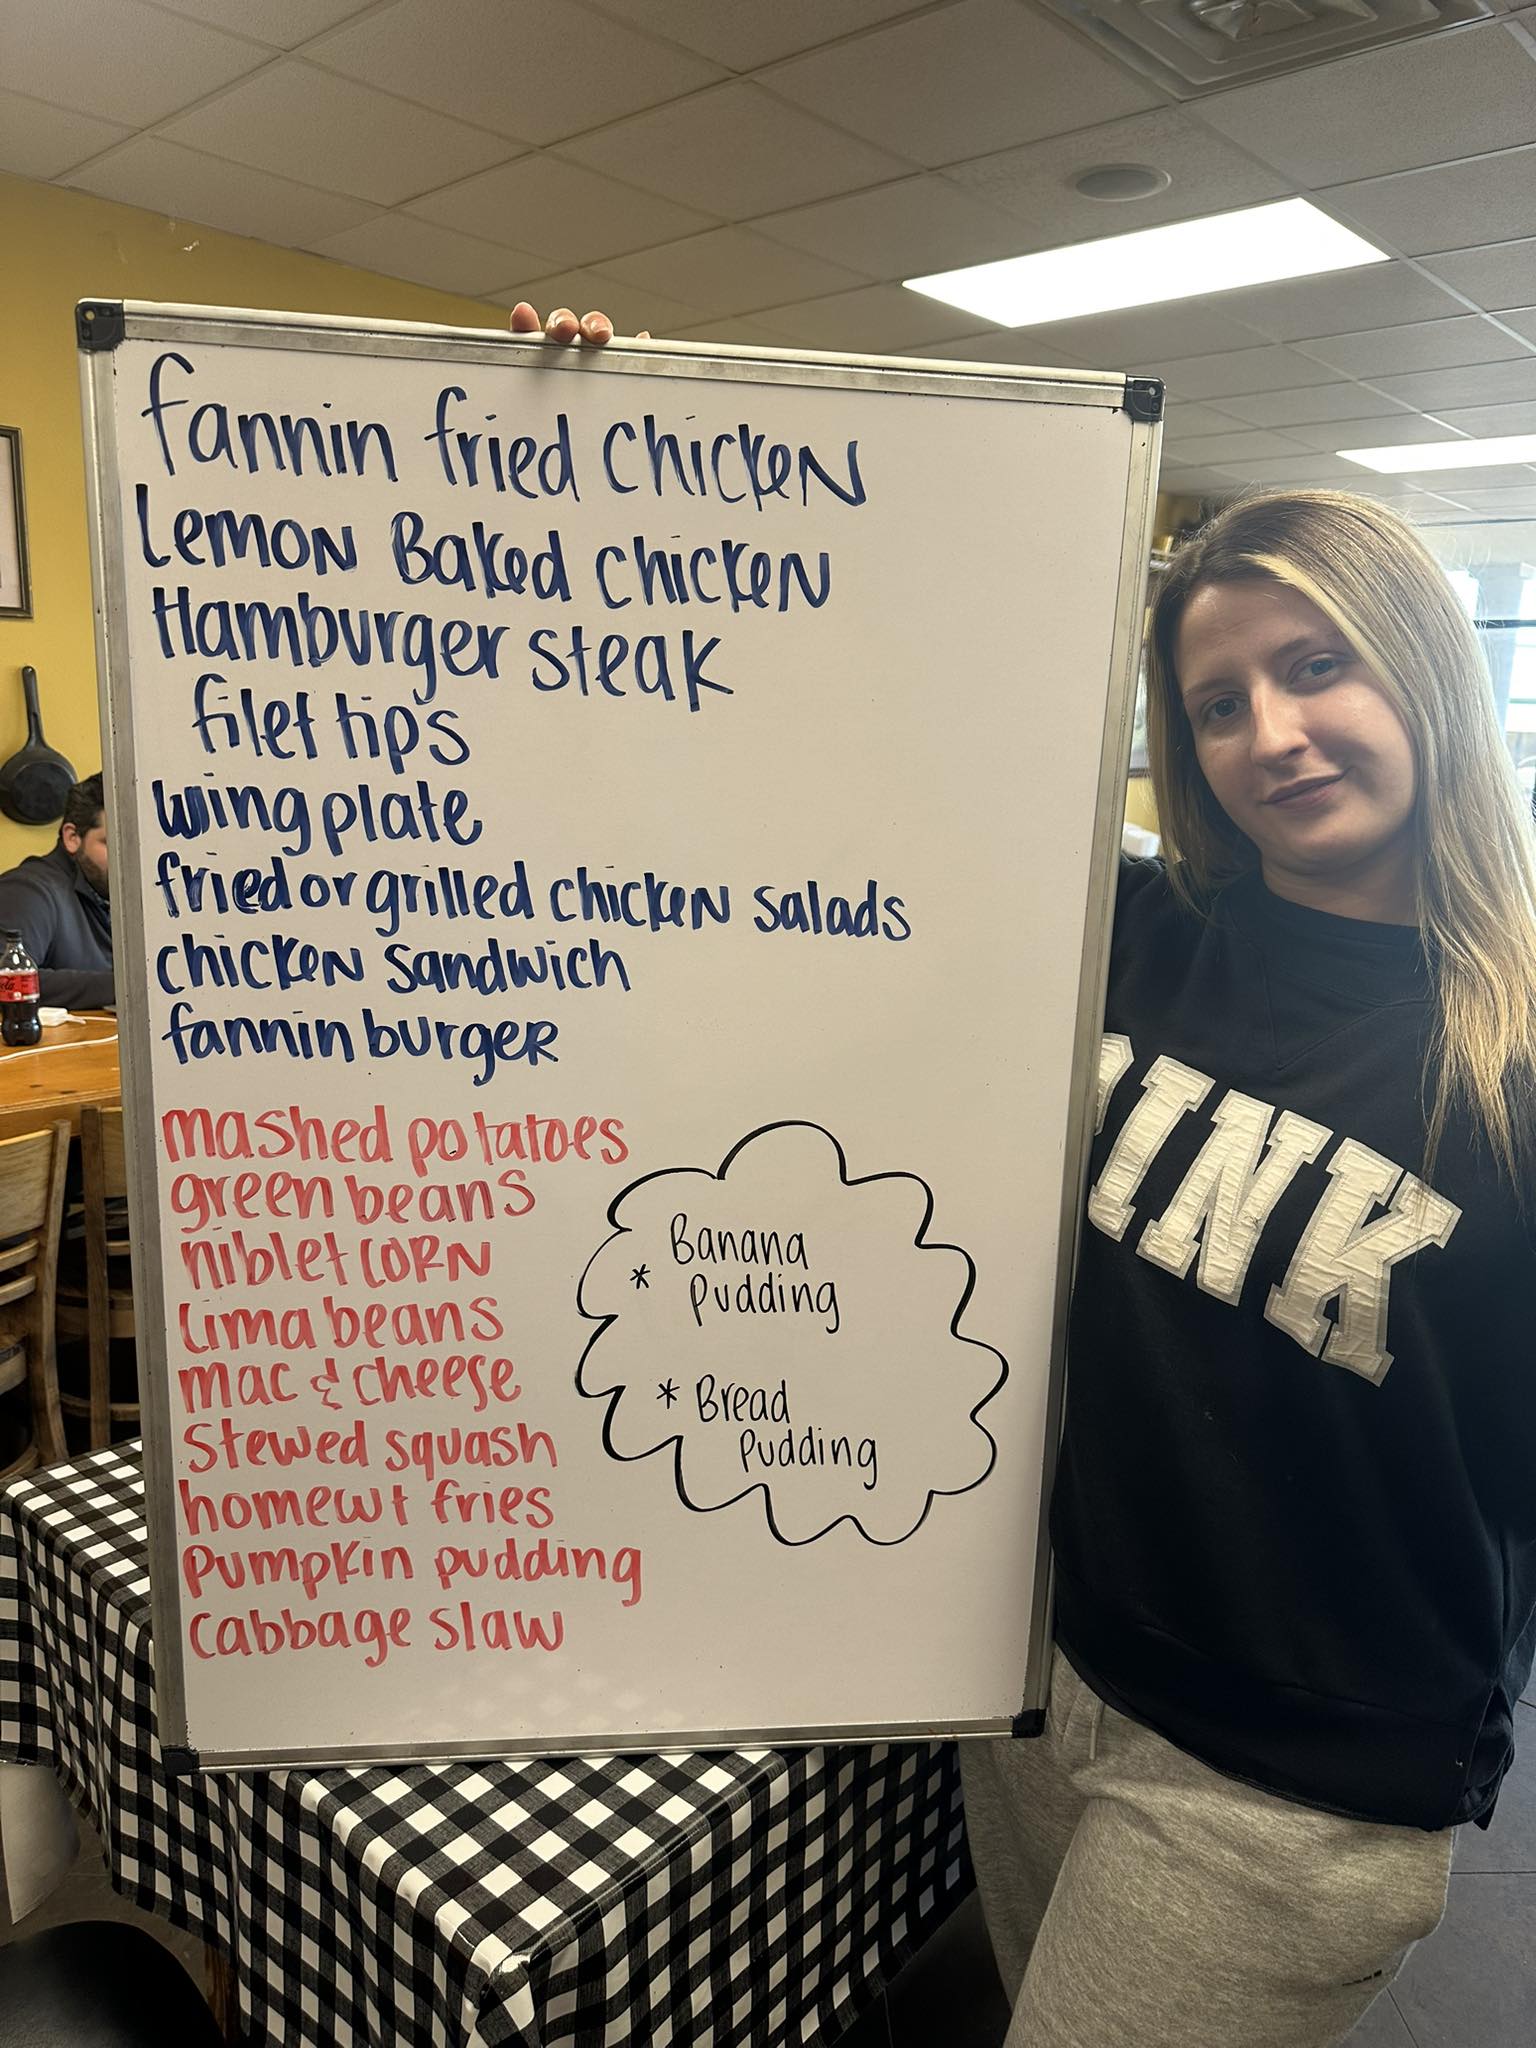 fannin fried chicken
Lemon Baked chicken
Hamburger steak
filet tips
wing plate
fried or grilled chicken salads
chicken sandwich
fannin burger
mashed potatoes
green beans
niblet corn
Lima beans
mac & cheese
Stewed squash
homecut fries
Pumpkin pudding
Cabbage slaw
* Banana
Pudding
* Bread
Pudding
PINK